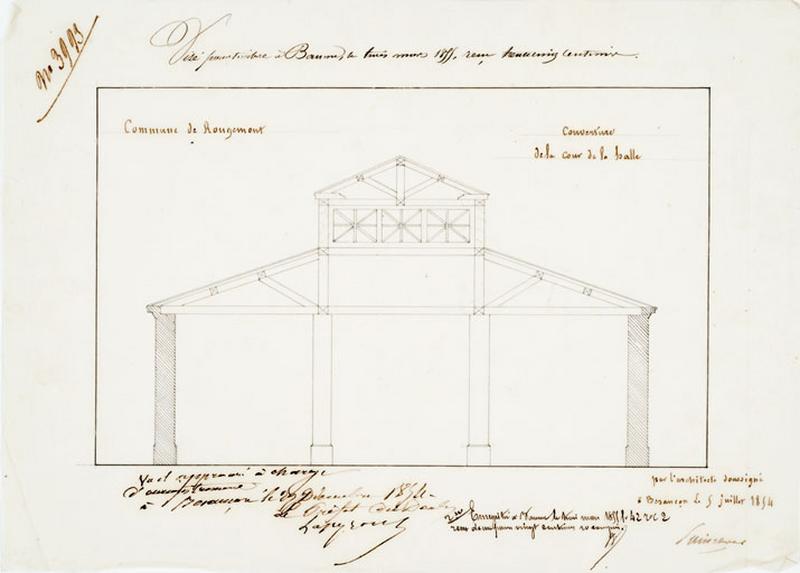 No 3993
Visé pour timbre à Baume, le trois mars 1855, reçu centimes.
Commune de Rougemont
Couverture
de la cour de la halle
Vu et approuvé à charge
d'
à Besançon le 29 Décembre 1854
Le Préfet du Doubs
par l'architecte soussigné
à Besançon le 5 juillet 1854
Enregistré à Baume le trois mars 1855 f. 42 v c 2
reçu vingt centimes